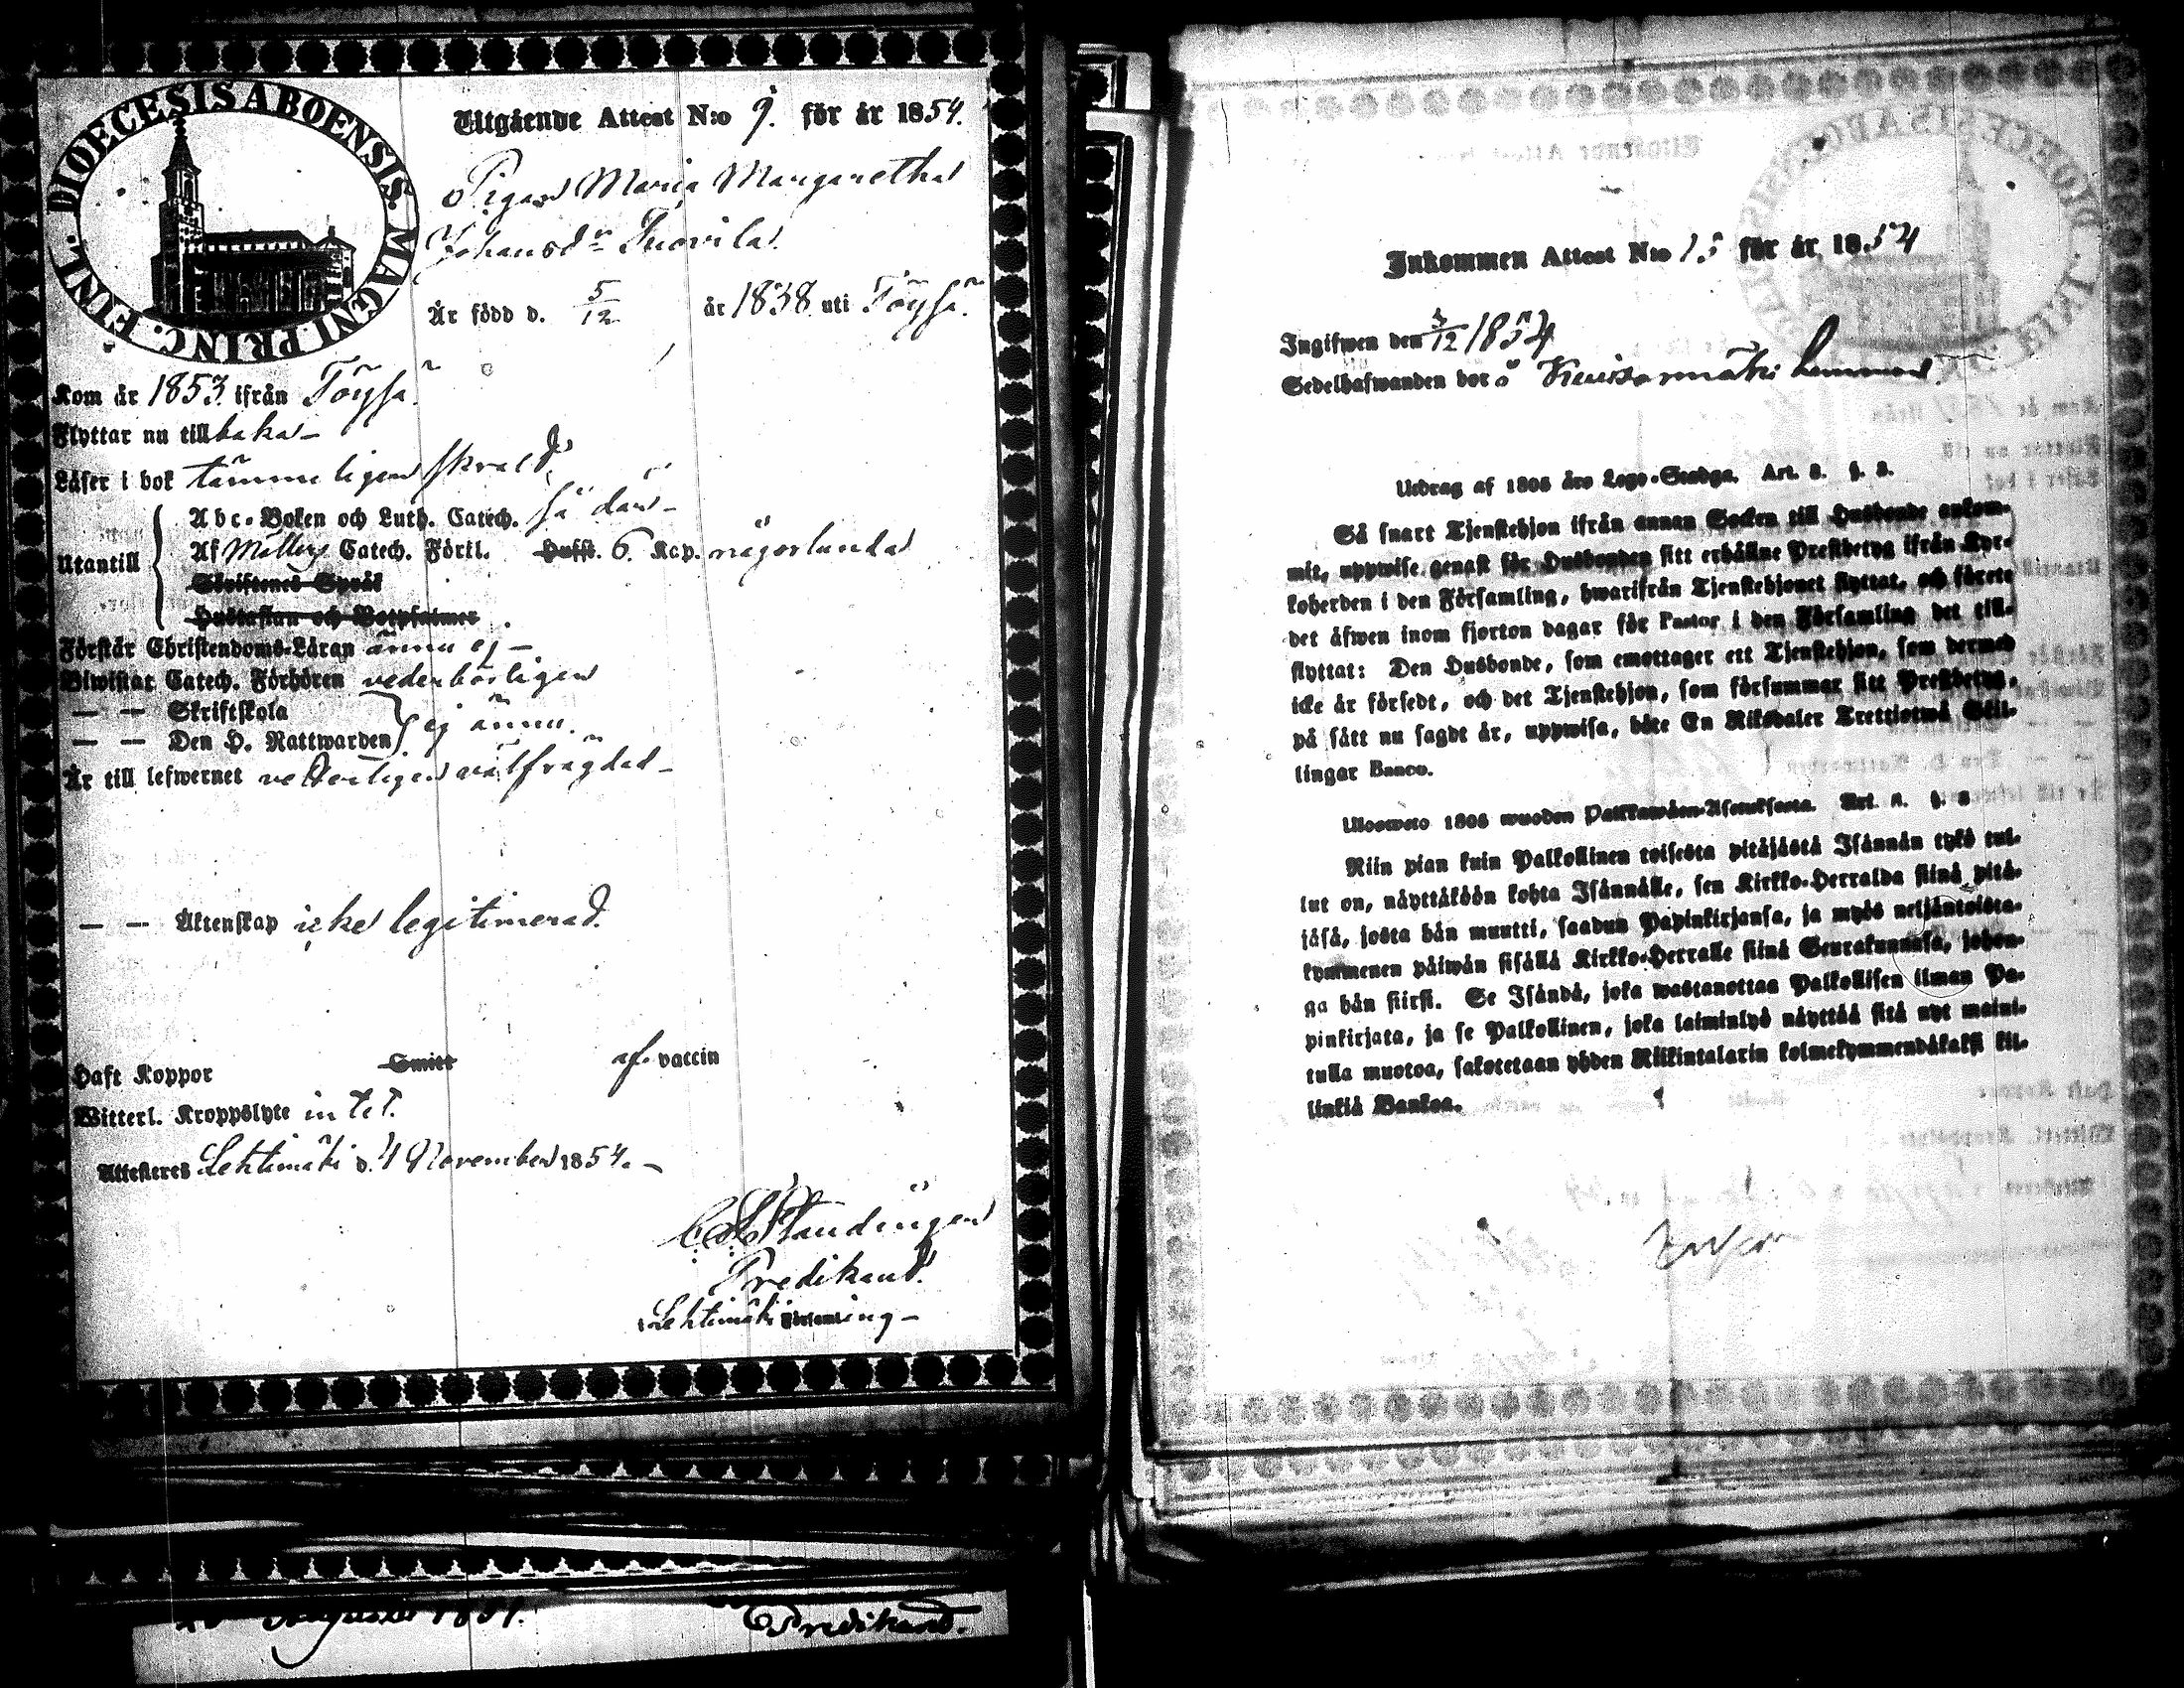 DIOECESIS ABOENSIS. MAGNI PRINC. FINL.
Utgående Attest N:o 9. för år 1854.
Pigan Maria Margaretha
Johansdr Tuovila
Är född d. 5/12 år 1838 uti Töysä.
Kom år 1853. ifrån Töysä.
Flyttar nu tillbaka –
Läser i bok tämmeligen skralt,
Utantill
Abc-Boken och Luth. Catech. så dan –
Af Möllers Catech. Förkl. Hufst. 6. Kap. någorlunda
Skriftenes Språk
Hustaflan och Botpsalmer
Förstår Christendoms-Läran ännu ej –
Biwistat Catech. Förhören vederbörligen
— — Skriftskola
— — Den H. Nattwarden ej ännu.
Är till lefwernet veterligen välfrägdad –
— — Äktenskap icke legitimerad.
Haft Koppor Smitt af vaccin
Witterl. Kroppslyte intet.
Attesteras Lehtimäki d. 4 November 1854. –
Predikant.
Lehtimäki Församling –
Augusti 1854.
Predikant.
Inkommen Attest N:o 15 för år 1854
Ingifwen den 3/12 1854
Sedelhafwanden bor å
Utdrag af 1805 års Lego-Stadga. Art. 3. §. 3.
Så snart Tjenstehjon ifrån annan Socken till Husbonde ankom-
mit, uppwise genast för Husbonden sitt erhållne Prestbetyg ifrån Kyr-
koherden i den Församling, hwarifrån Tjenstehjonet flyttat, och förete
det äfwen inom fjorton dagar för Pastor i den Församling det till-
flyttat: Den Husbonde, som emottager ett Tjenstehjon, som dermed
icke är försedt, och det Tjenstehjon, som försummar sitt Prestbetyg,
på sätt nu sagdt är, uppwisa, böte En Riksdaler Trettiotwå Skil-
lingar Banco.
Ulosweto 1805 wuoden Palkkawäen-Asetuksesta. Art. 3. §. 3
Niin pian kuin Palkollinen toisesta pitäjästä Isännän tykö tul-
lut on, näyttäköön kohta Isännälle, sen Kirkko-Herralda siinä pitä-
jäsä, josta hän muutti, saadun Papinkirjansa, ja myös neljäntoista-
kymmenen päiwän sisällä Kirkko-Herralle siinä Seurakunnasa, johon-
ga hän siirsi. Se Isändä, joka wastanottaa Palkollisen ilman Pa-
pinkirjata, ja se Palkollinen, joka laiminlyö näyttää sitä nyt maini-
tulla muotoa, sakotetaan yhden Riikintalarin kolmekymmendäkaksi kil-
linkiä Bankoa.